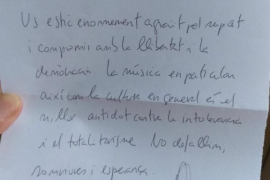 Us estic enormement agraït pel suport
i compromís amb la llibertat i la
democràcia. La música en particular
així com la cultura en general és el
millor antídot contra la intolerància
i el totalitarisme. No defallim,
somriures i esperança.